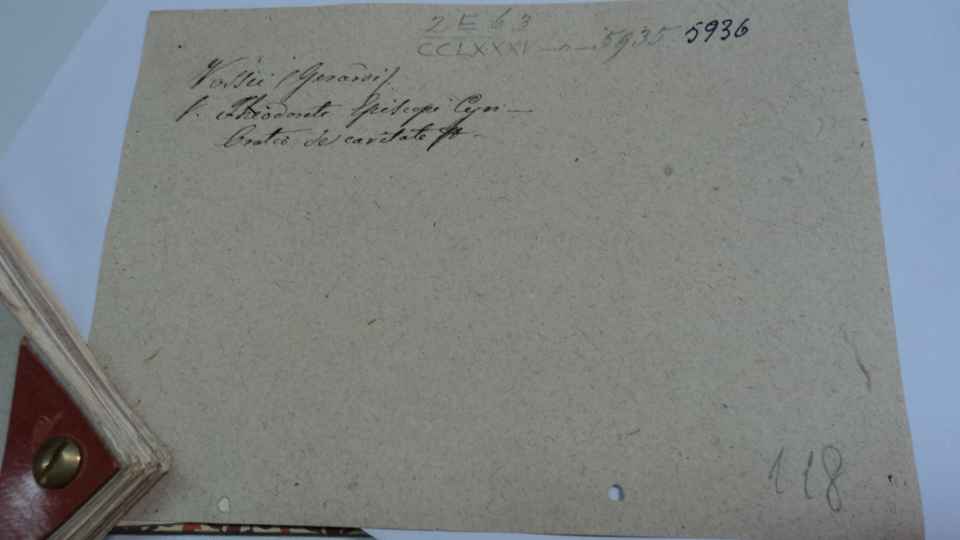 2 E 63
CCLXXXI – n – 5935 5936
Vossii (Gerardi)
Theodoreti Episcopi Cyri –
Oratio de caritate –
118